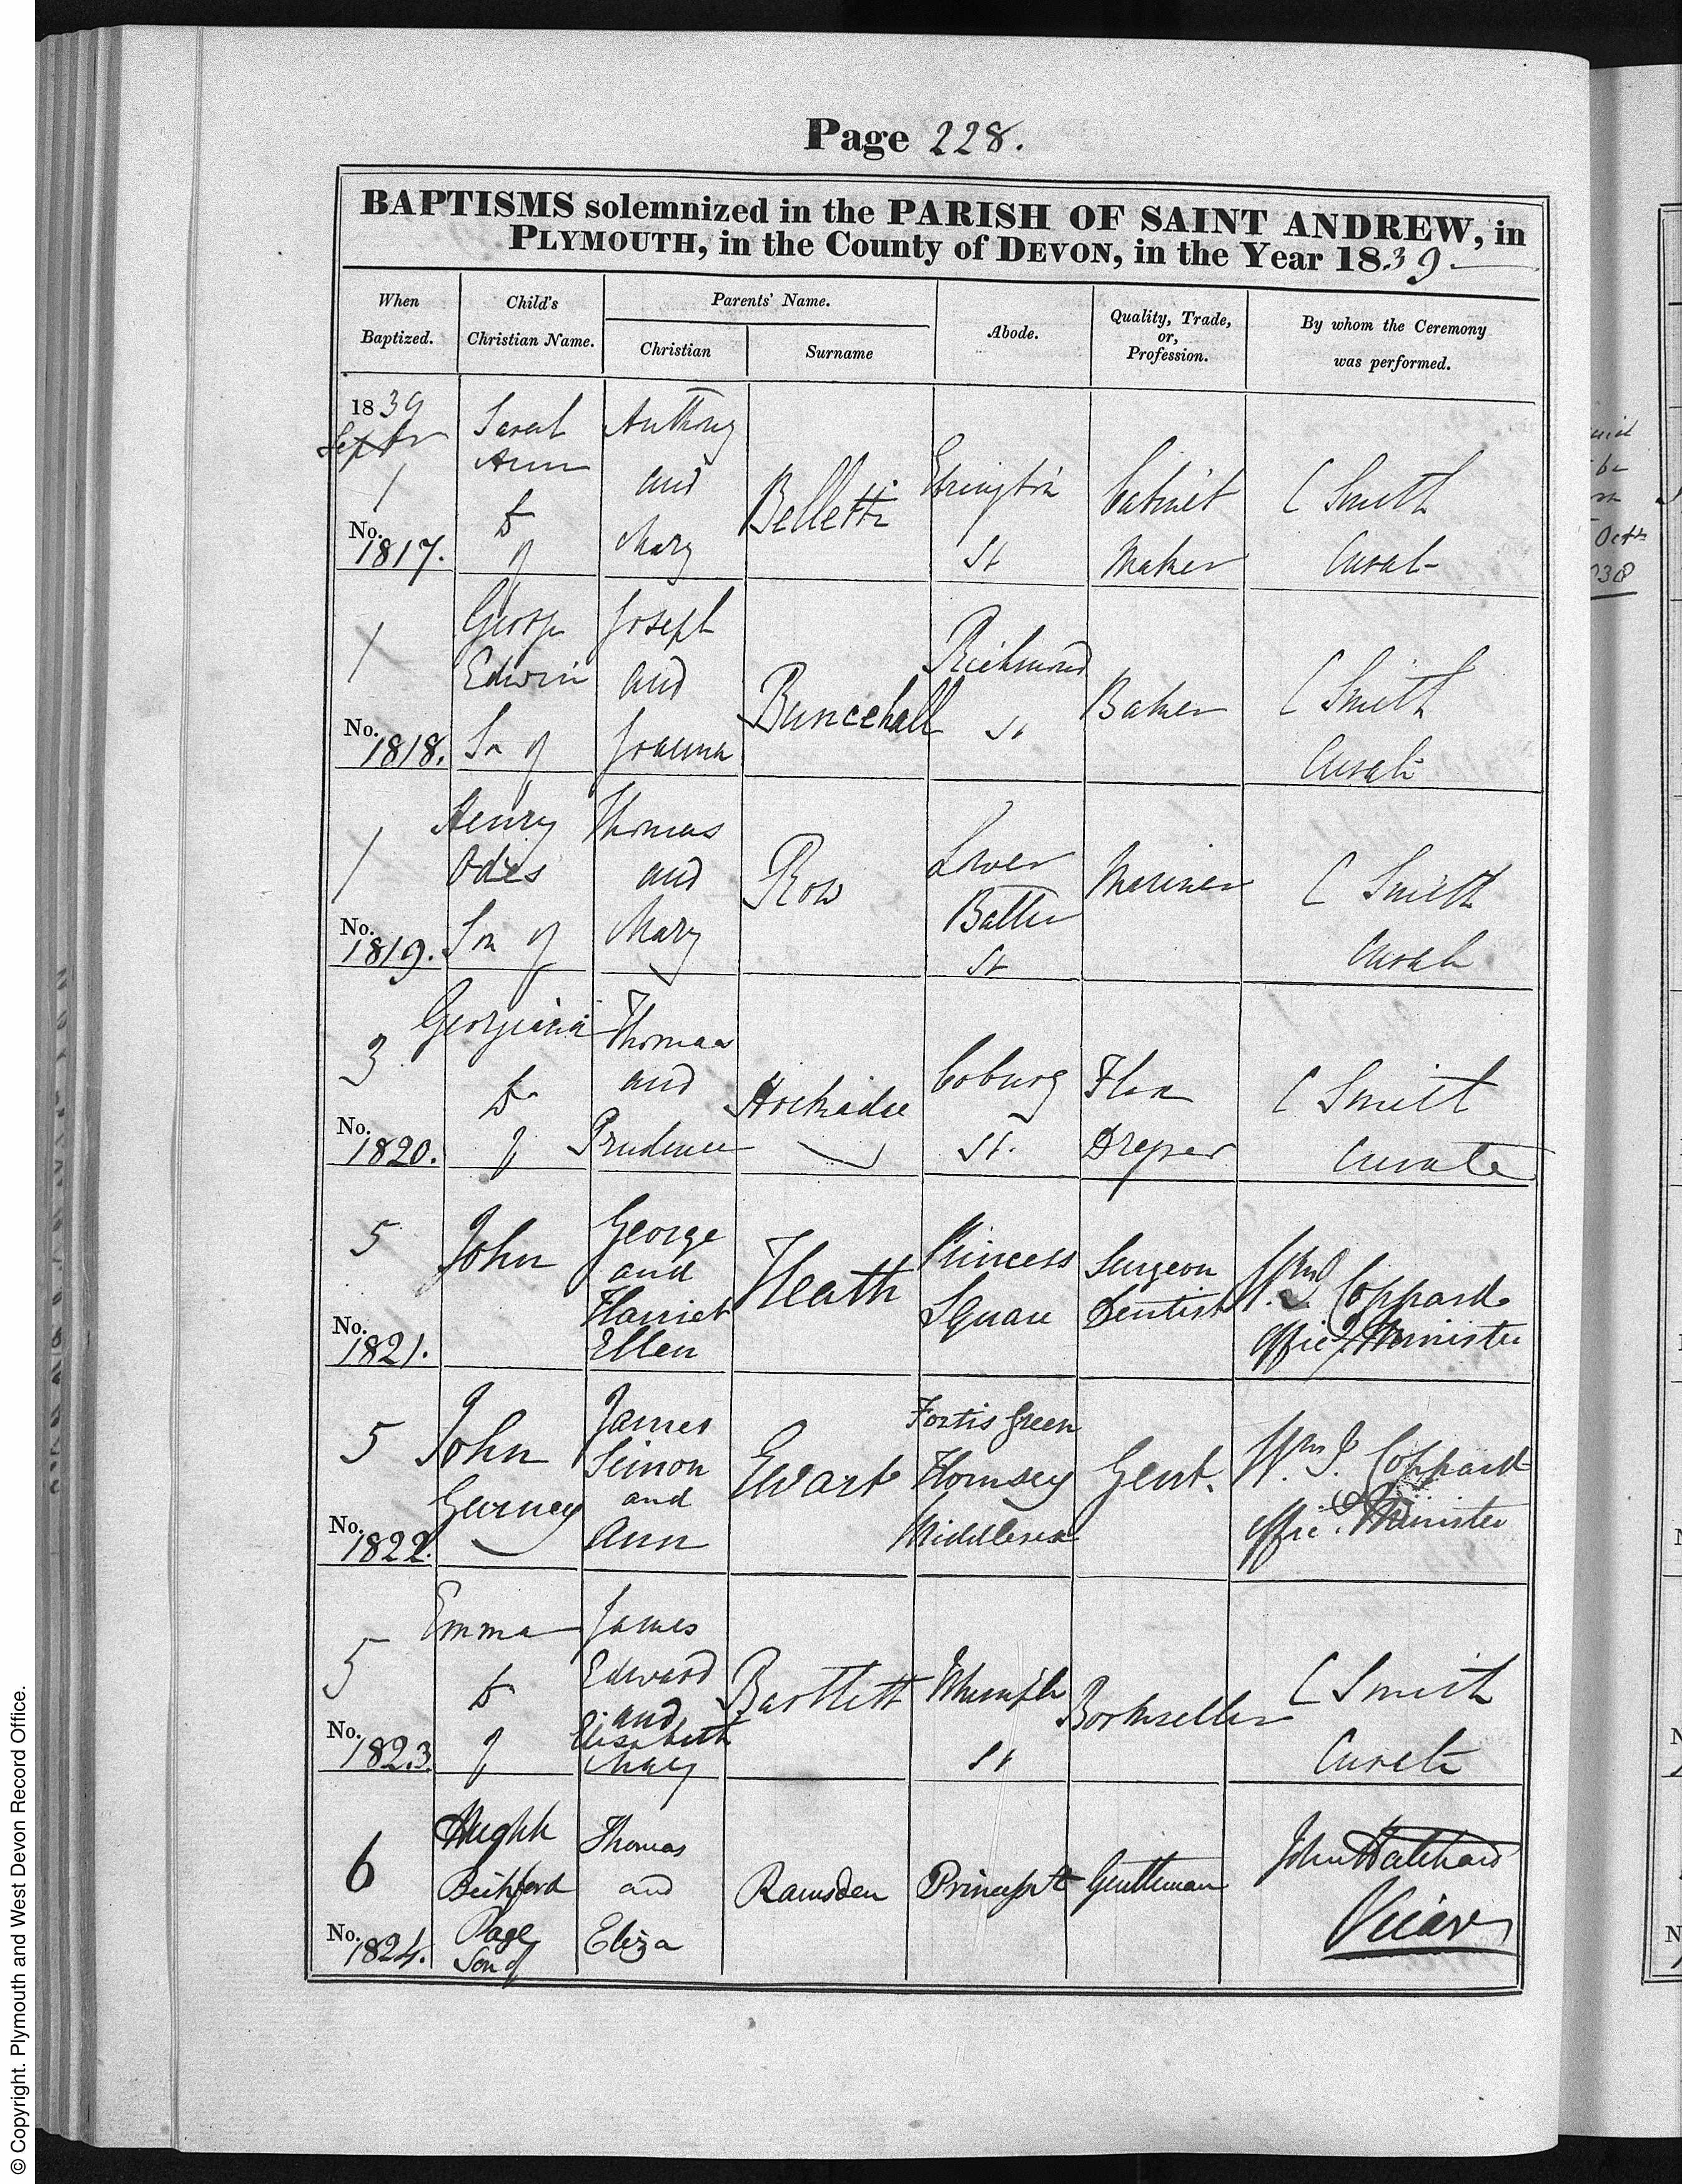 Page 228.
BAPTISMS solemnized in the PARISH OF SAINT ANDREW, in
PLYMOUTH, in the County of DEVON, in the Year 1839.
When Baptized.
Child's Christian Name.
Parents' Name.
Christian
Surname
Abode.
Quality, Trade, or, Profession.
By whom the Ceremony was performed.
1839
Septbr
1
No. 1817.
Sarah
Ann
D
of
Anthony
and
Mary
Belletti
Ebrington
St
Cabinet
Maker
C Smith
Curate
1
No. 1818.
George
Edwin
Sn of
Joseph
and
Joanna
Buncehall
Richmond
St
Baker
C Smith
Curate
1
No. 1819.
Henry
Odes
Sn of
Thomas
and
Mary
Row
Lower
Batter
St
Mariner
C Smith
Curate
3
No. 1820.
Georgiana
D
of
Thomas
and
Prudence
Coburg
St.
Draper
C Smith
Curate
5
No. 1821.
John
George
and
Harriet
Ellen
Heath
Princess
Square
Surgeon
Dentist
Wm. I. Coppard
Minister
5
No. 1822.
John
Gurney
James
Simon
and
Ann
Ewart
Fortis Green
Hornsey
Middlesex
Gent.
Wm. I. Coppard
Minister
5
No. 1823.
Emma
D
of
James
Edward
and
Elisabeth
Mary
Bartlett
St
Bookseller
C Smith
Curate
6
No. 1824.
Hugh
Bickford
Page
Son of
Thomas
and
Eliza
Ramsden
Princess St
Gentleman
John Hatchard
Vicar
Oct
© Copyright. Plymouth and West Devon Record Office.